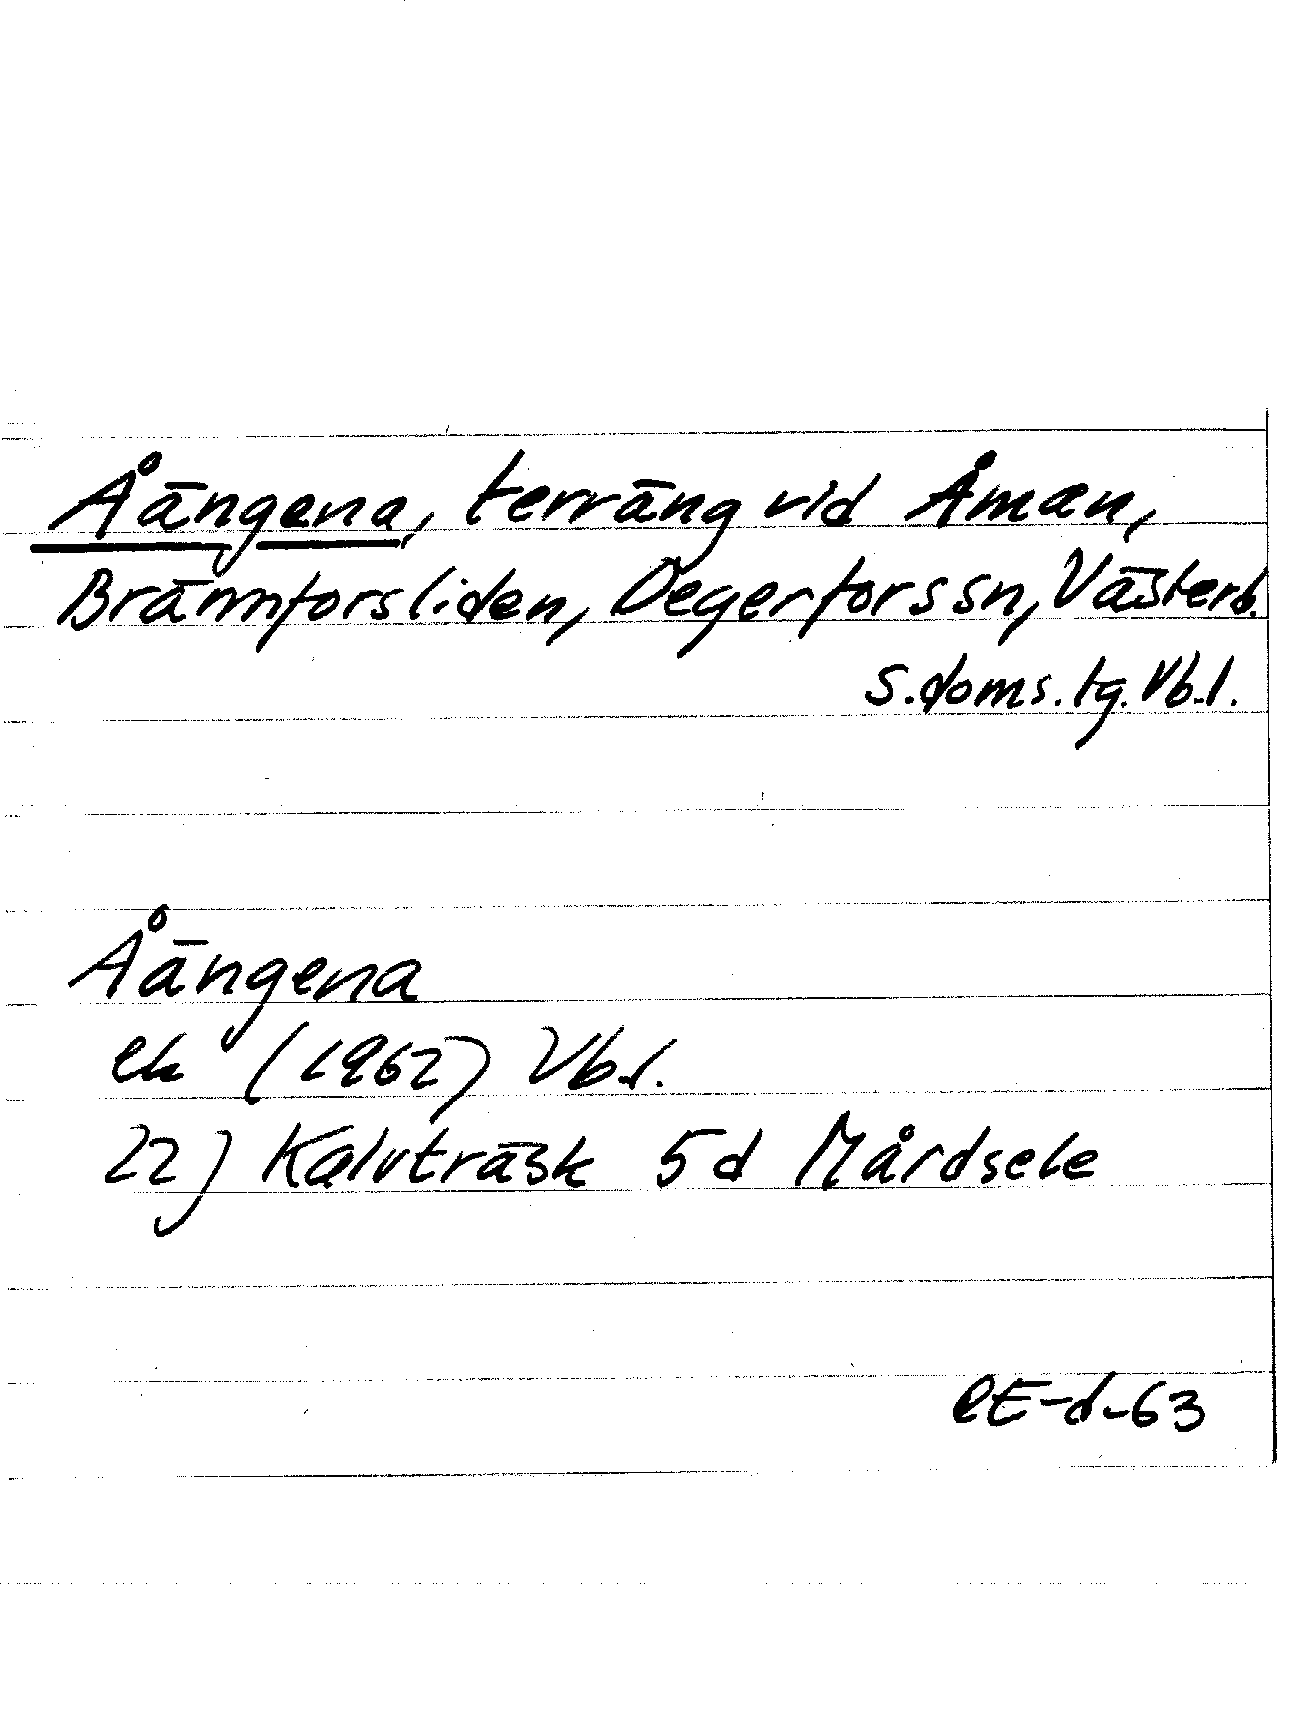 Åängena, terräng vid Åman,
Brännforsliden, Degerfors sn, Västerb.
s. doms. tg. Vb. l.
Åängena
ek (1962) Vb. l.
22) Kalvträsk 5d Mårdsele
RE-d-63